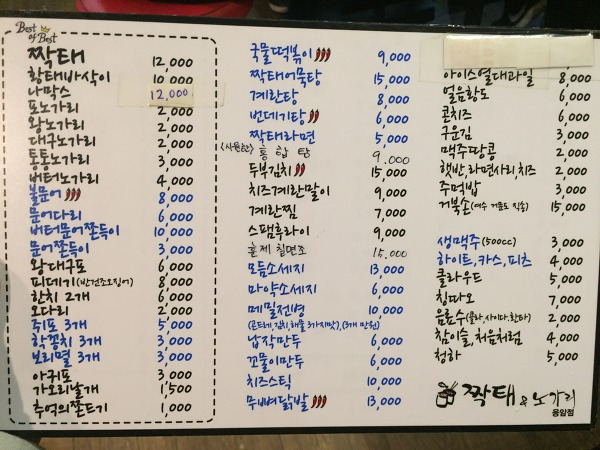 Best of Best
짝태 12,000
황태바사삭이 10,000
나막스 12,000
포노가리 2,000
왕노가리 2,000
대구노가리 2,000
통통노가리 3,000
버터노가리 4,000
불문어 8,000
문어다리 6,000
버터문어쫀득이 10,000
문어쫀득이 3,000
왕대구포 6,000
피데기(반건조오징어) 8,000
한치 2개 6,000
오다리 2,000
쥐포 3개 5,000
학꽁치 3개 3,000
보리멸 3개 3,000
아귀포 3,000
가오리날개 1,500
추억의쫀드기 1,000
국물떡볶이 9,000
짝태어묵탕 15,000
계란탕 8,000
번데기탕 6,000
짝태라면 5,000
홍합탕 9,000
두부김치 15,000
치즈계란말이 9,000
계란찜 7,000
스팸후라이 9,000
훈제칠면조 15,000
모듬소세지 13,000
마약소세지 6,000
메밀전병 10,000
납작만두 6,000
꼬물이만두 6,000
치즈스틱 10,000
무뼈닭발 13,000
아이스열대과일 8,000
얼음황도 6,000
콘치즈 6,000
구운김 3,000
맥주땅콩 2,000
햇반,라면사리,치즈 2,000
주먹밥 3,000
거북손(여수 거문도 직송) 15,000
생맥주(500cc) 3,000
하이트,카스,피츠 4,000
클라우드 5,000
칭따오 7,000
음료수(콜라,사이다,환타) 2,000
참이슬,처음처럼 4,000
청하 5,000
짝태 & 노가리
응암점